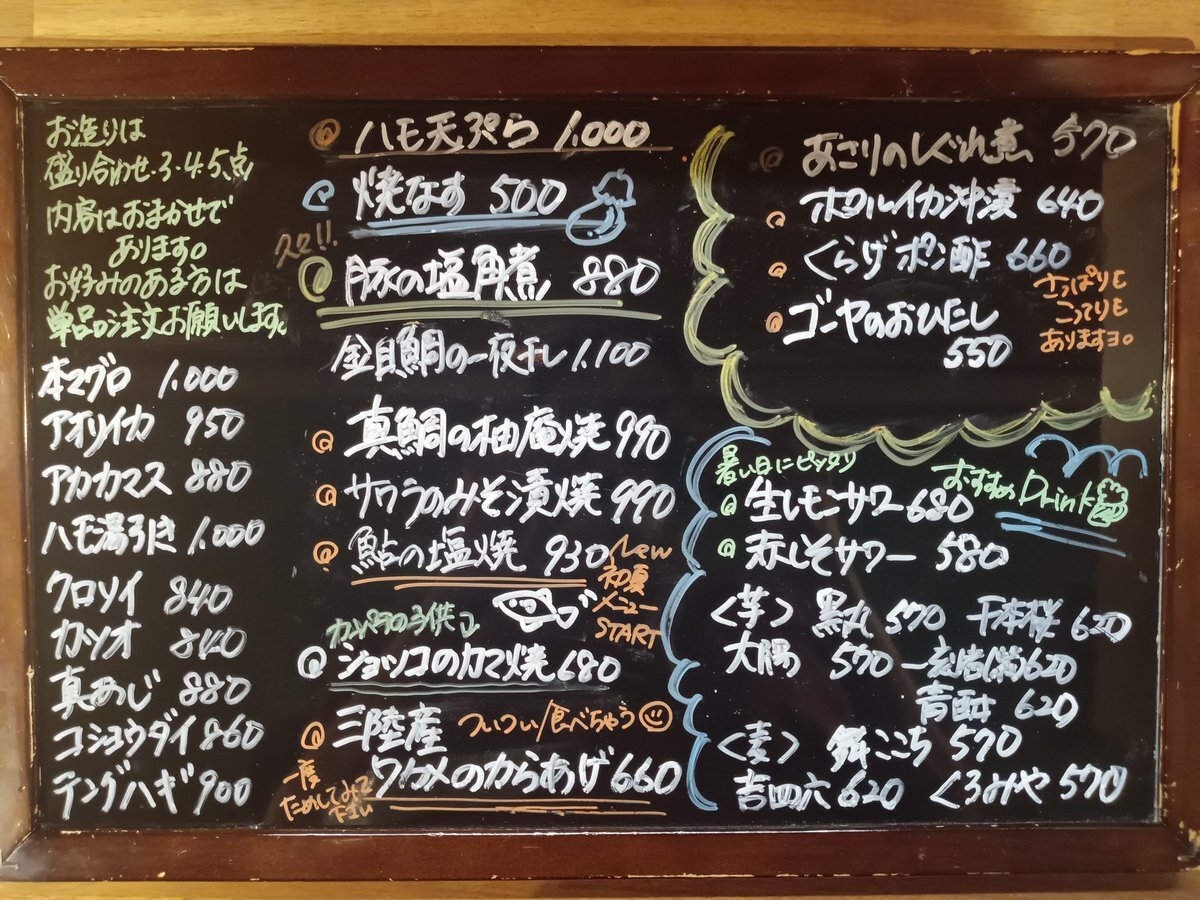 お造りは
盛り合わせ・3・4・5点
内容はおまかせで
あります。
お好みのある方は
単品の注文お願いします。
本マグロ 1.000
アオリイカ 950
アカカマス 880
ハモ湯引き 1.000
クロソイ 840
カツオ 840
真あじ 880
コショウダイ 860
テングハギ 900
ハモ天ぷら 1.000
焼なす 500
豚の塩角煮 880
金目鯛の一夜干し 1.100
真鯛の柚庵焼 990
サワラのみそ漬焼 990
鮎の塩焼 930
New
初夏
メニュー
START
カンパチの子供
ショッコのカマ焼 680
三陸産 ついつい食べちゃう
ワカメのからあげ 660
一度
ためしてみて
下さい
あさりのしぐれ煮 570
ホタルイカ沖漬 640
くらげポン酢 660
ゴーヤのおひたし
550
さっぱりも
こってりも
ありますヨ。
暑い日にピッタリ
おすすめ Drink
生レモンサワー 680
赤しそサワー 580
〈芋〉 黒丸 570 千本桜 620
大隅 570 一刻者(赤) 620
青酎 620
〈麦〉 舞ここち 570
吉四六 620 くろみや 570